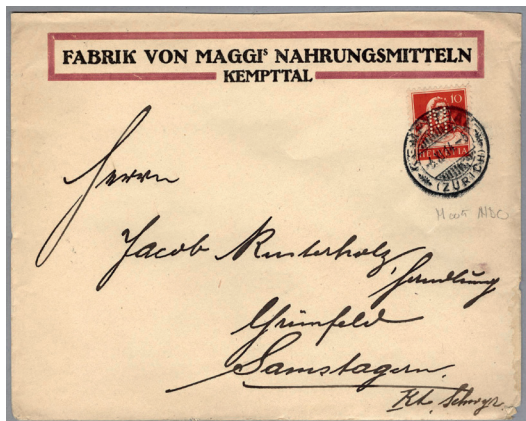 FABRIK VON MAGGIˢ NAHRUNGSMITTELN
KEMPTTAL
10
HELVETIA
(ZÜRICH)
Herrn
Jacob Rusterholz, Handlung
Grünfeld
Samstagern.
Kt. Schwyz